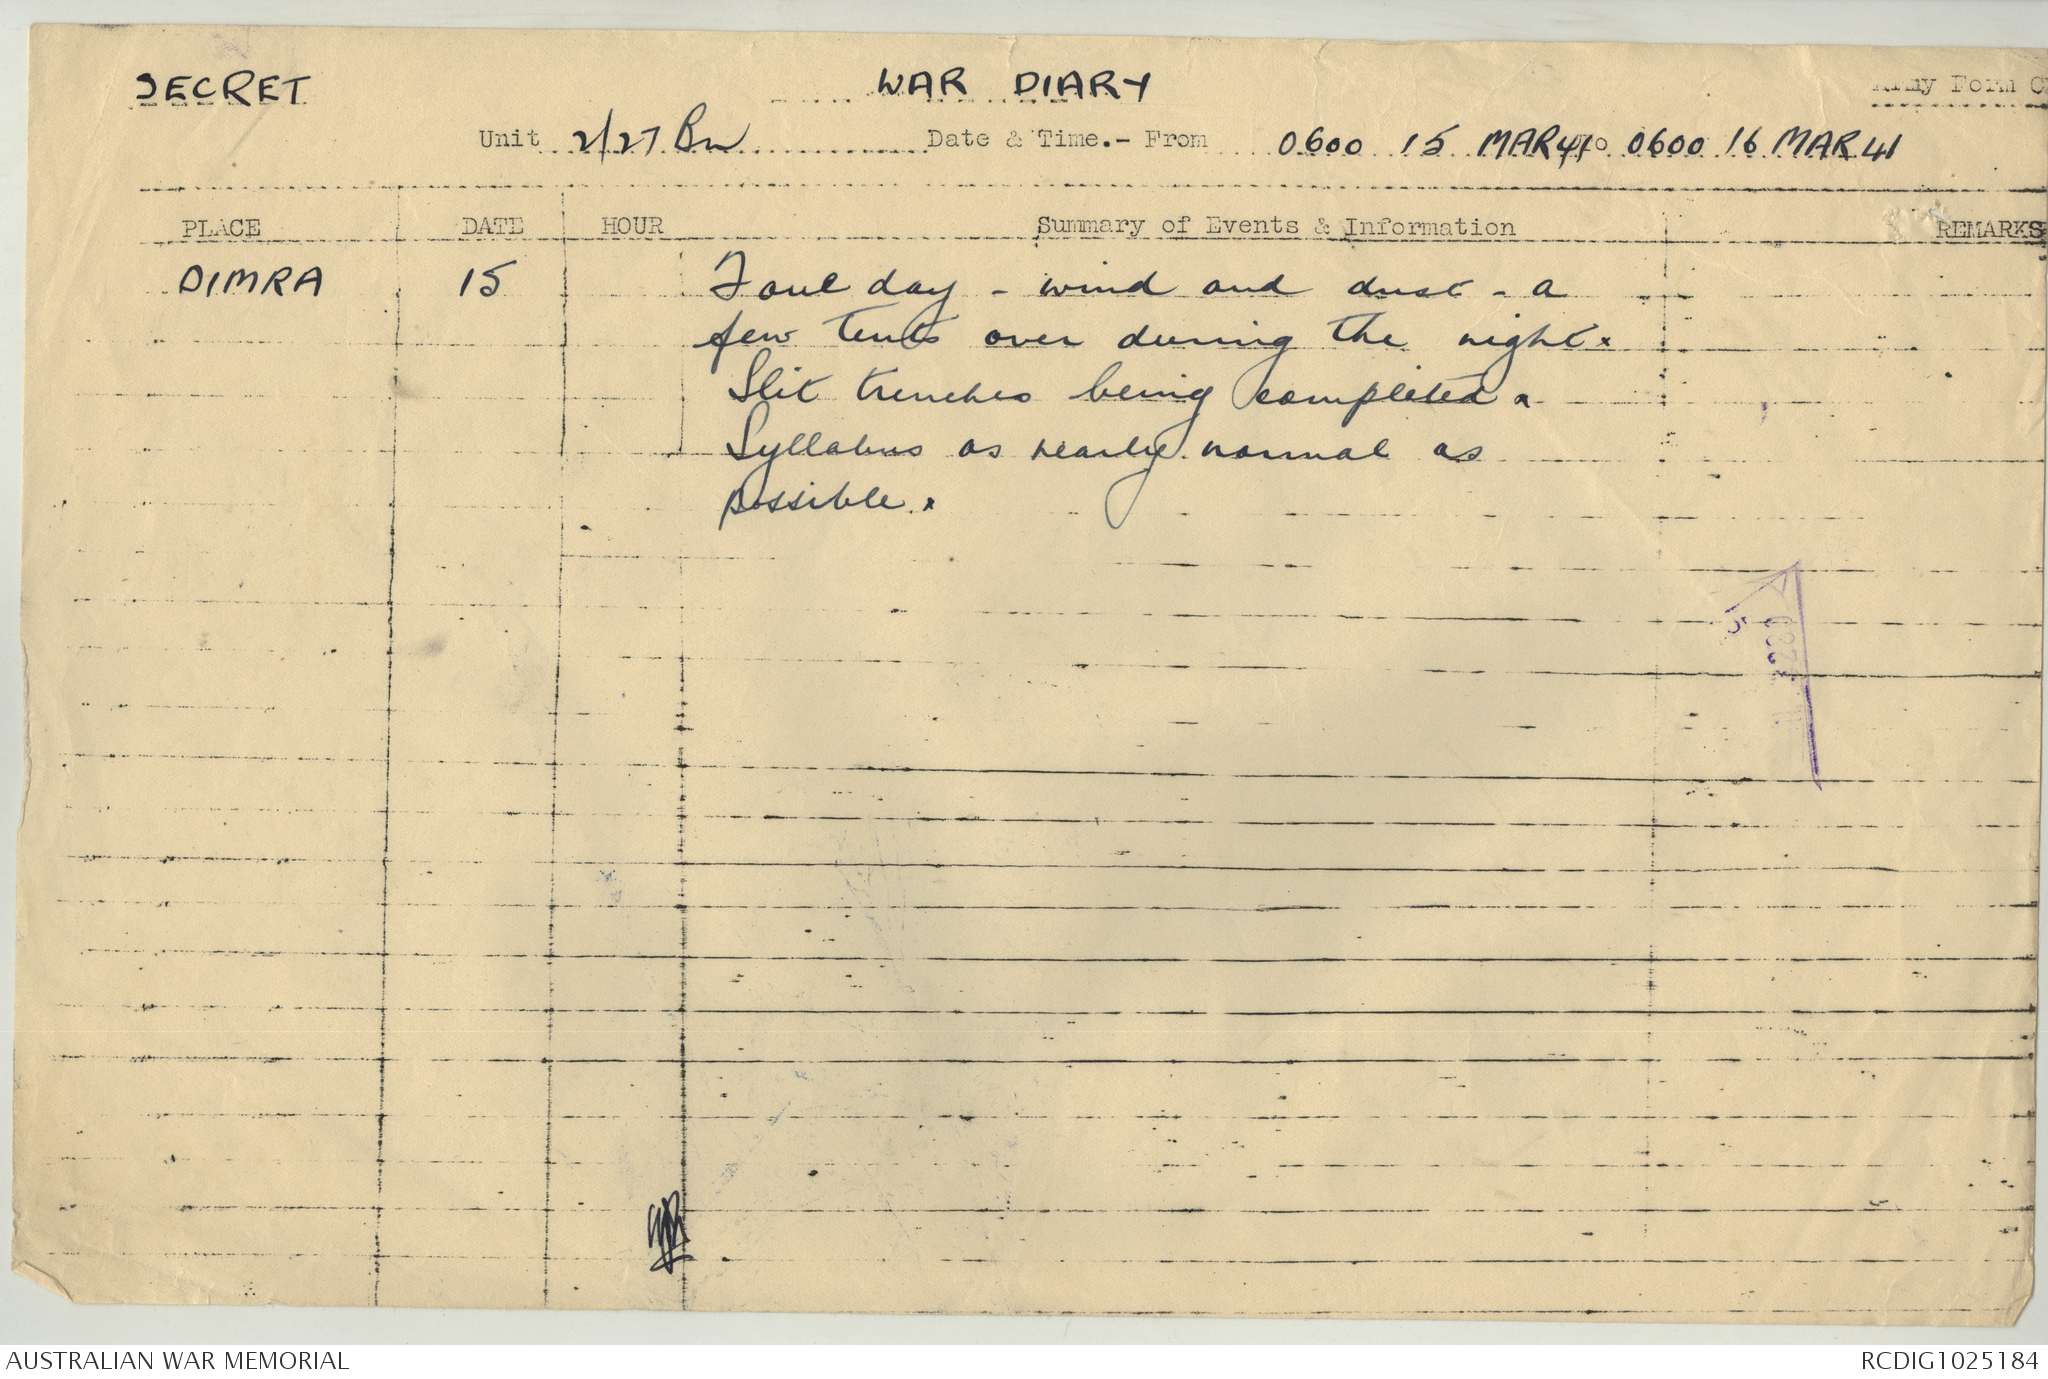 SECRET
WAR DIARY
Army Form C
Unit 2/27 Bn Date & Time.- From 0600 15 MAR 41 To 0600 16 MAR 41
PLACE DATE HOUR Summary of Events & Information REMARKS
DIMRA 15 Foul day - wind and dust - a
few tents over during the night.
Slit trenches being completed.
Syllabus as nearly normal as
possible.
AUSTRALIAN WAR MEMORIAL
RCDIG1025184